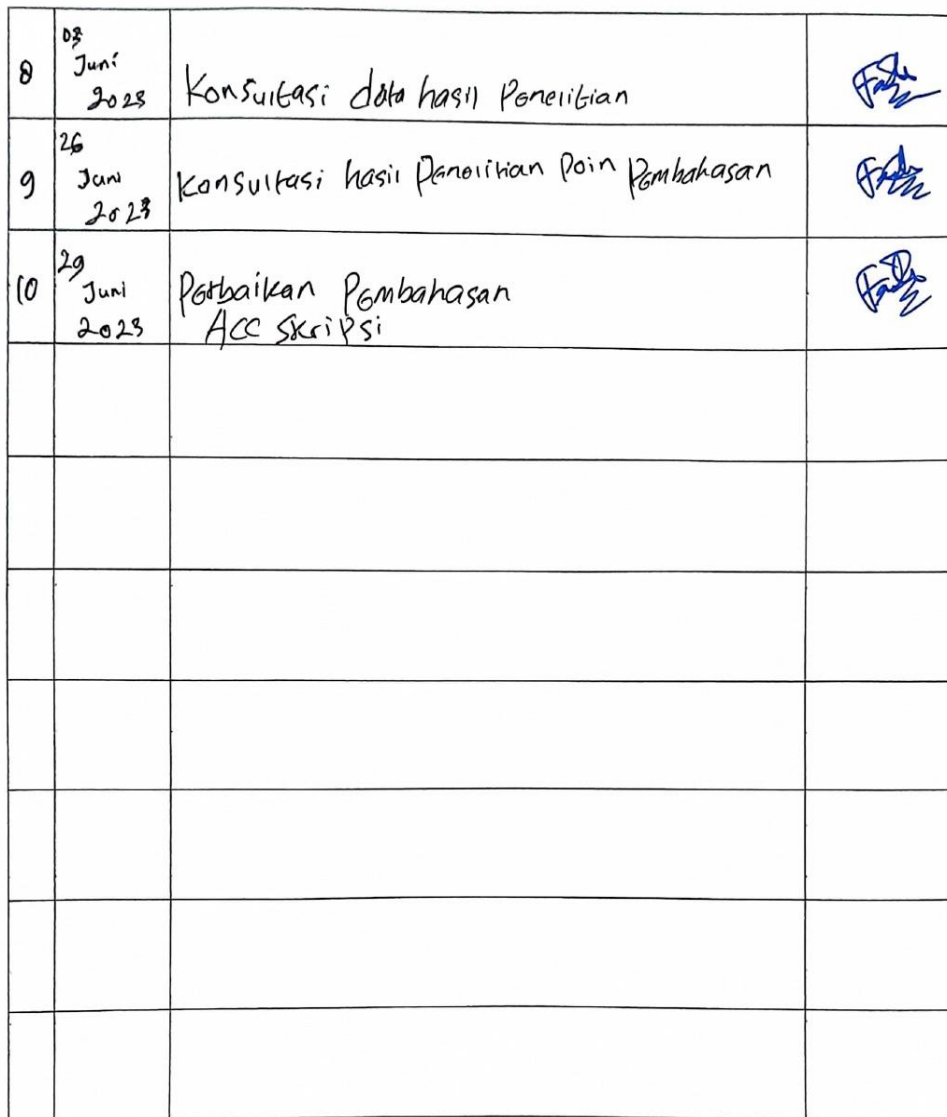 8
03
Juni
2023
Konsultasi data hasil Penelitian
9
26
Juni
2023
Konsultasi hasil Penelitian Poin Pembahasan
10
29
Juni
2023
Perbaikan Pembahasan
ACC Skripsi